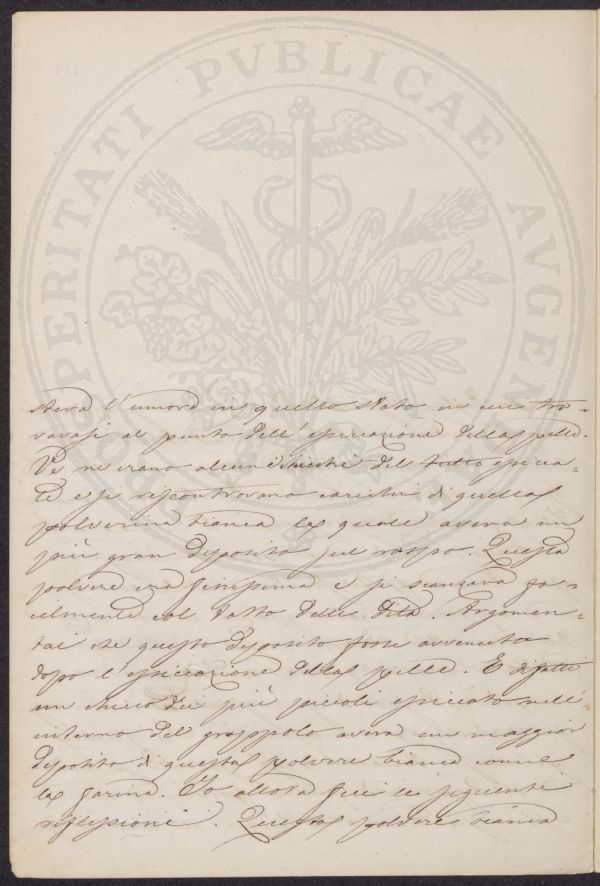 PROSPERITATI PVBLICAE AVGEN
steva l'umore in quello stato in cui tro-
vavasi al punto dell'essiccazione della pelle.
Ve ne erano alcuni chicchi del tutto essicca-
ti e si riscontravano carichi di quella
polverina bianca la quale aveva un
più gran deposito sul raspo. Questa
polvere era finissima e si scansava fa-
cilmente col tatto delle dita. Argomen-
tai che questo deposito fosse avvenuto
dopo l'essiccazione della pelle. E difatti
un chicco dei più piccoli essiccato nell'
interno del grappolo aveva un maggior
deposito di questa polvere bianca come
la farina. Io allora feci le seguenti
riflessioni. Questa polvere bianca